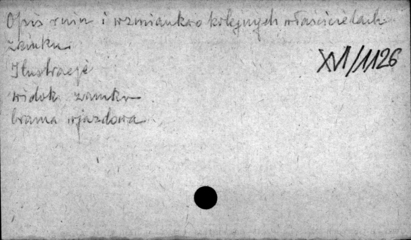 Opis ruin i wzmianka o kolejnych właścicielach
zamku.
Ilustracje
widok zamku
brama wjazdowa
XVI/1126